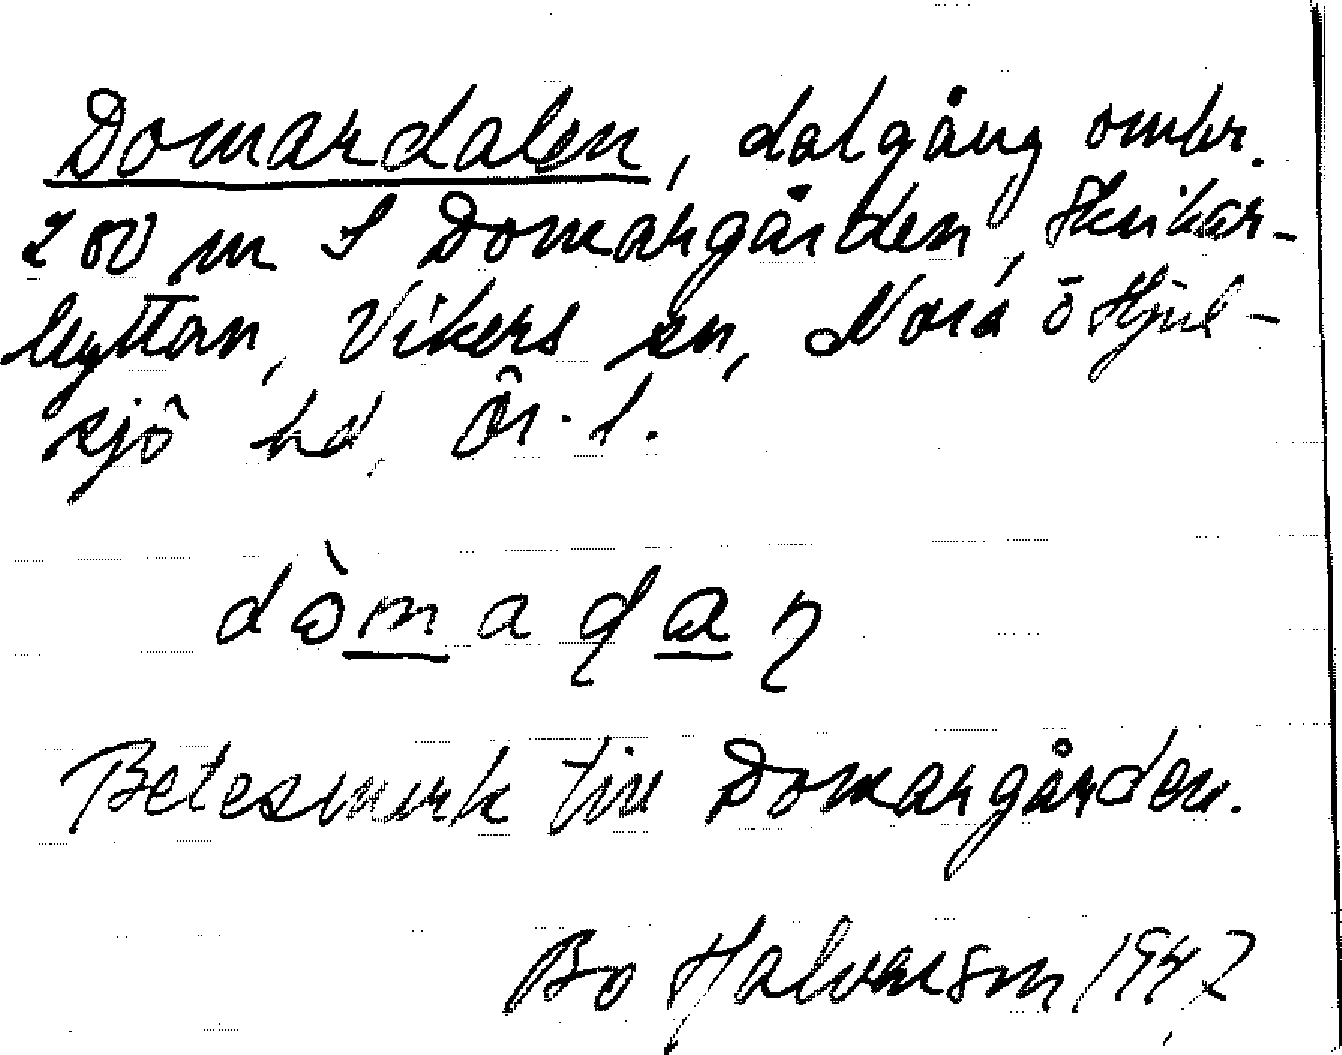 Domardalen, dalgång ombr.
200 m S Domargården, Skrikar-
hyttan, Vikers sn, Nora o Hjul-
sjö hd, Ör. l.
dò̀maɖaɳ
Betesmark till Domargården.
Bo Halvarson 1947